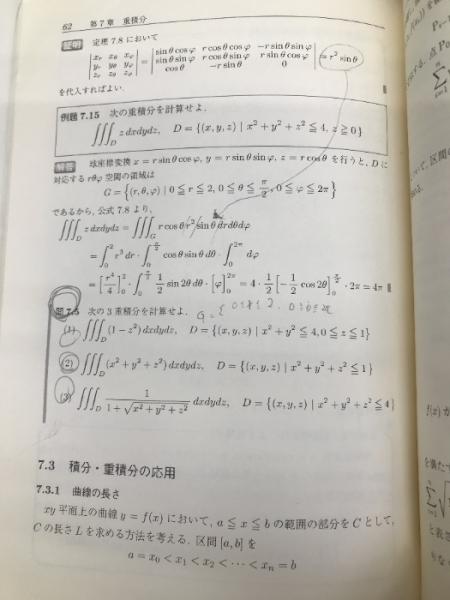 62 第7章 重積分
証明 定理 7.8 において
| x_r x_θ x_φ | | sinθcosφ r cosθcosφ −r sinθsinφ |
| y_r y_θ y_φ | = | sinθsinφ r cosθsinφ r sinθcosφ | = r² sinθ
| z_r z_θ z_φ | | cosθ −r sinθ 0 |
を代入すればよい.
例題 7.15 次の重積分を計算せよ.
∭_D z dxdydz, D = {(x, y, z) | x² + y² + z² ≦ 4, z ≧ 0}
解答 球座標変換 x = r sinθcosφ, y = r sinθsinφ, z = r cosθ を行うと, D に
対応する rθφ 空間の領域は
G = {(r, θ, φ) | 0 ≦ r ≦ 2, 0 ≦ θ ≦ π/2, 0 ≦ φ ≦ 2π}
であるから, 公式 7.8 より,
∭_D z dxdydz = ∭_G r cosθ r² sinθ drdθdφ
= ∫_0^2 r³ dr · ∫_0^{π/2} cosθ sinθ dθ · ∫_0^{2π} dφ
= [r⁴/4]_0^2 · ∫_0^{π/2} 1/2 sin 2θ dθ · [φ]_0^{2π} = 4 · 1/2 [−1/2 cos 2θ]_0^{π/2} · 2π = 4π
問 7.5 次の 3 重積分を計算せよ.
(1) ∭_D (1 − z²) dxdydz, D = {(x, y, z) | x² + y² ≦ 4, 0 ≦ z ≦ 1}
(2) ∭_D (x² + y² + z²) dxdydz, D = {(x, y, z) | x² + y² + z² ≦ 1}
(3) ∭_D 1/(1 + √(x² + y² + z²)) dxdydz, D = {(x, y, z) | x² + y² + z² ≦ 4}
7.3 積分・重積分の応用
7.3.1 曲線の長さ
xy 平面上の曲線 y = f(x) において, a ≦ x ≦ b の範囲の部分を C として,
C の長さ L を求める方法を考える. 区間 [a, b] を
a = x₀ < x₁ < x₂ < ··· < xₙ = b